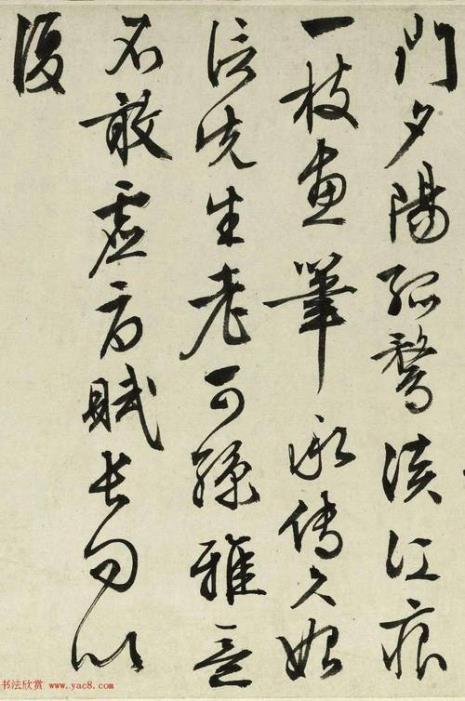 門夕陽孤鶩淡江痕
一枝畫筆承傳久始
信先生老可孫雅意
不敢虛賦長句以
復
书法欣赏 www.yac8.com